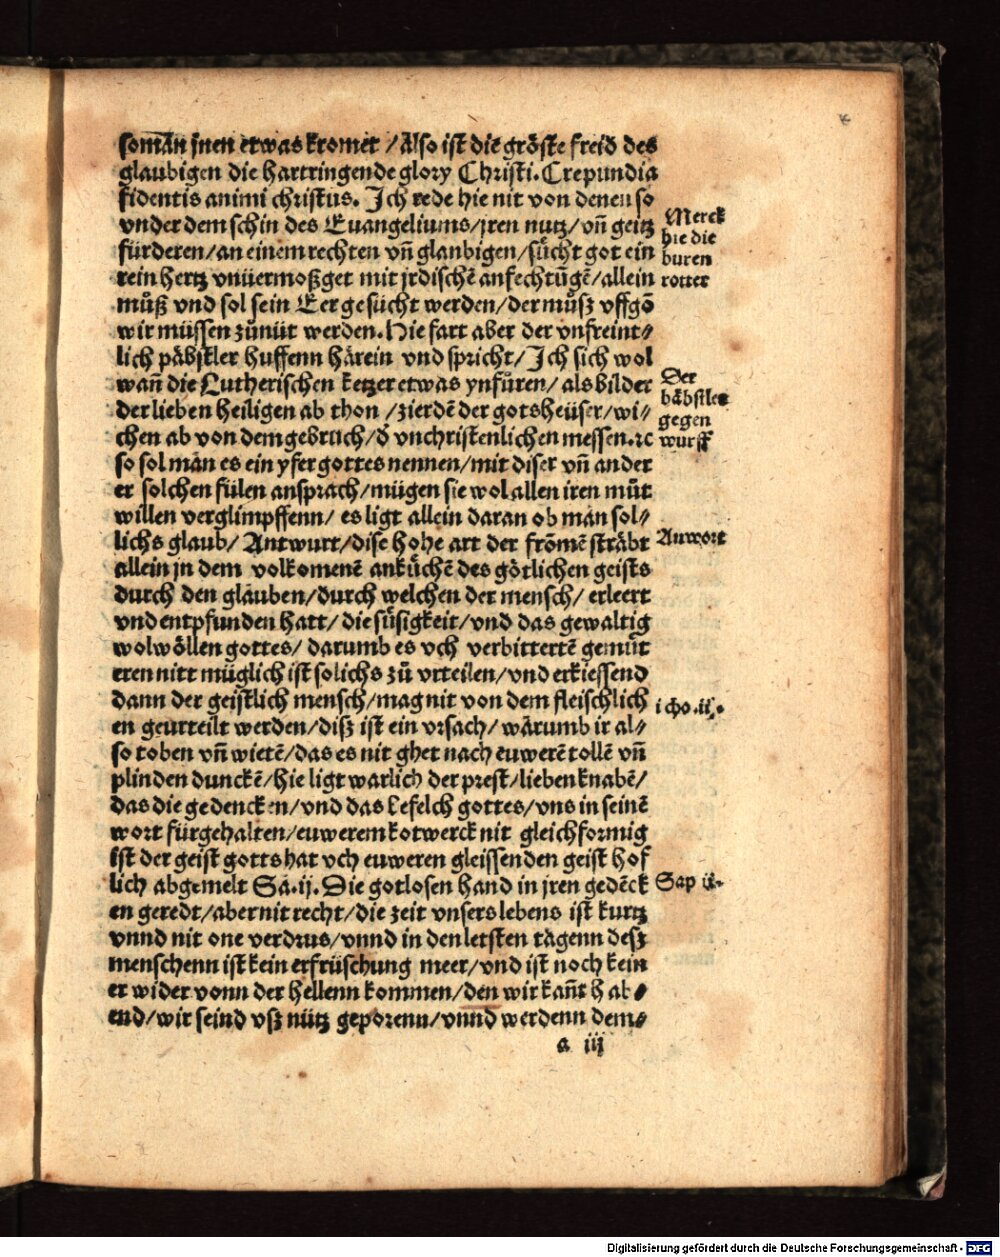 somān jnen etwas kromet / Also ist die gröste freid des
glaubigen die hartringende glory Christi. Crepundia
fidentis animi christus. Ich rede hie nit von denen so
vnder dem schin des Euangeliums/ jren nutz/ vn̄ geitz
fürderen/ an einem rechten vn̄ glanbigen/ sůcht got ein
rein hertz vnüermoßget mit jrdischē anfechtūgē/ allein
můß vnd sol sein Eer gesücht werden/ der můsz vffgō
wir müssen zůnüt werden. Hie fart aber der vnfreint⸗
lich päbstler huffenn härein vnd spricht/ Ich sich wol
wan̄ die Lutherischen ketzer etwas ynfůren/ als bilder
der lieben heiligen ab thon / zierdē der gotsheüser/ wi⸗
chen ab von dem gebruch/ d̄ vnchristenlichen messen. ꝛc
so sol mān es ein yfer gottes nennen/ mit diser vn̄ ander
er solchen fülen ansprach/ mügen sie wol allen iren můt
willen verglimpffenn/ es ligt allein daran ob mān sol⸗
lichs glaub/ Antwurt/ dise hohe art der frōmē sträbt
allein jn dem volkomenē ankůchē des götlichen geists
durch den glauben/ durch welchen der mensch/ erleert
vnd entpfunden hatt/ die sůsigkeit/ vnd das gewaltig
wolwöllen gottes/ darumb es vch verbittertē gemůt
eren nitt müglich ist solichs zů vrteilen/ vnd erkiessend
dann der geistlich mensch/ mag nit von dem fleischlich
en geurteilt werden/ disz ist ein vrsach/ wārumb ir al⸗
so toben vn̄ wietē/ das es nit ghet nach euwerē tollē vn̄
plinden dunckē/ hie ligt warlich der prest/ lieben knabē/
das die gedencken/ vnd das Lefelch gottes/ vns in seinē
wort fürgehalten/ euwerem kotwerck nit gleichformig
ist der geist gotts hat vch euweren gleissenden geist hof
lich abgemelt Sā. ij. Die gotlosen hand in jren gedēck
en geredt/ aber nit recht/ die zeit vnsers lebens ist kurtz
vnnd nit one verdrus/ vnnd in den letsten tägenn desz
menschenn ist kein erfrüschung meer/ vnd ist noch kein
er wider vonn der hellenn kommen/ den wir kan̄t hab⸗
end/ wir seind vsz nütz geporenn/ vnnd werdenn dem⸗
a iij
Merck
hie die
buren
rotter
Der
bäbstler
gegen
wurff
Anwort
i cho. ij.
Sap ij.
Digitalisierung gefördert durch die Deutsche Forschungsgemeinschaft - DFG